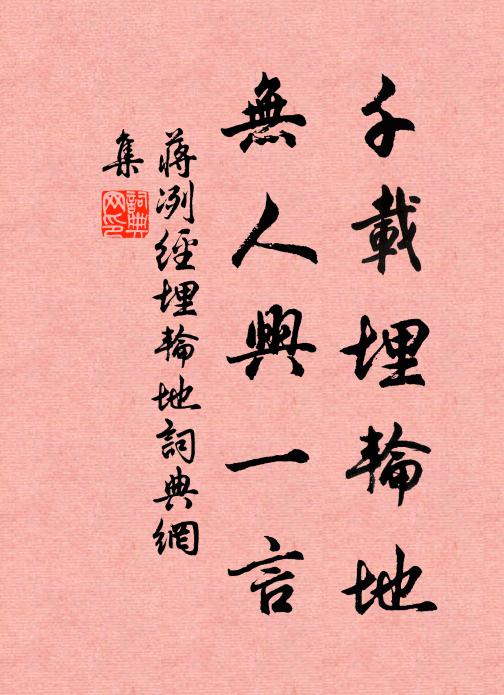 千載埋輪地
無人興一言
蔣冽經埋輪地詞典網
集
詞典
网印